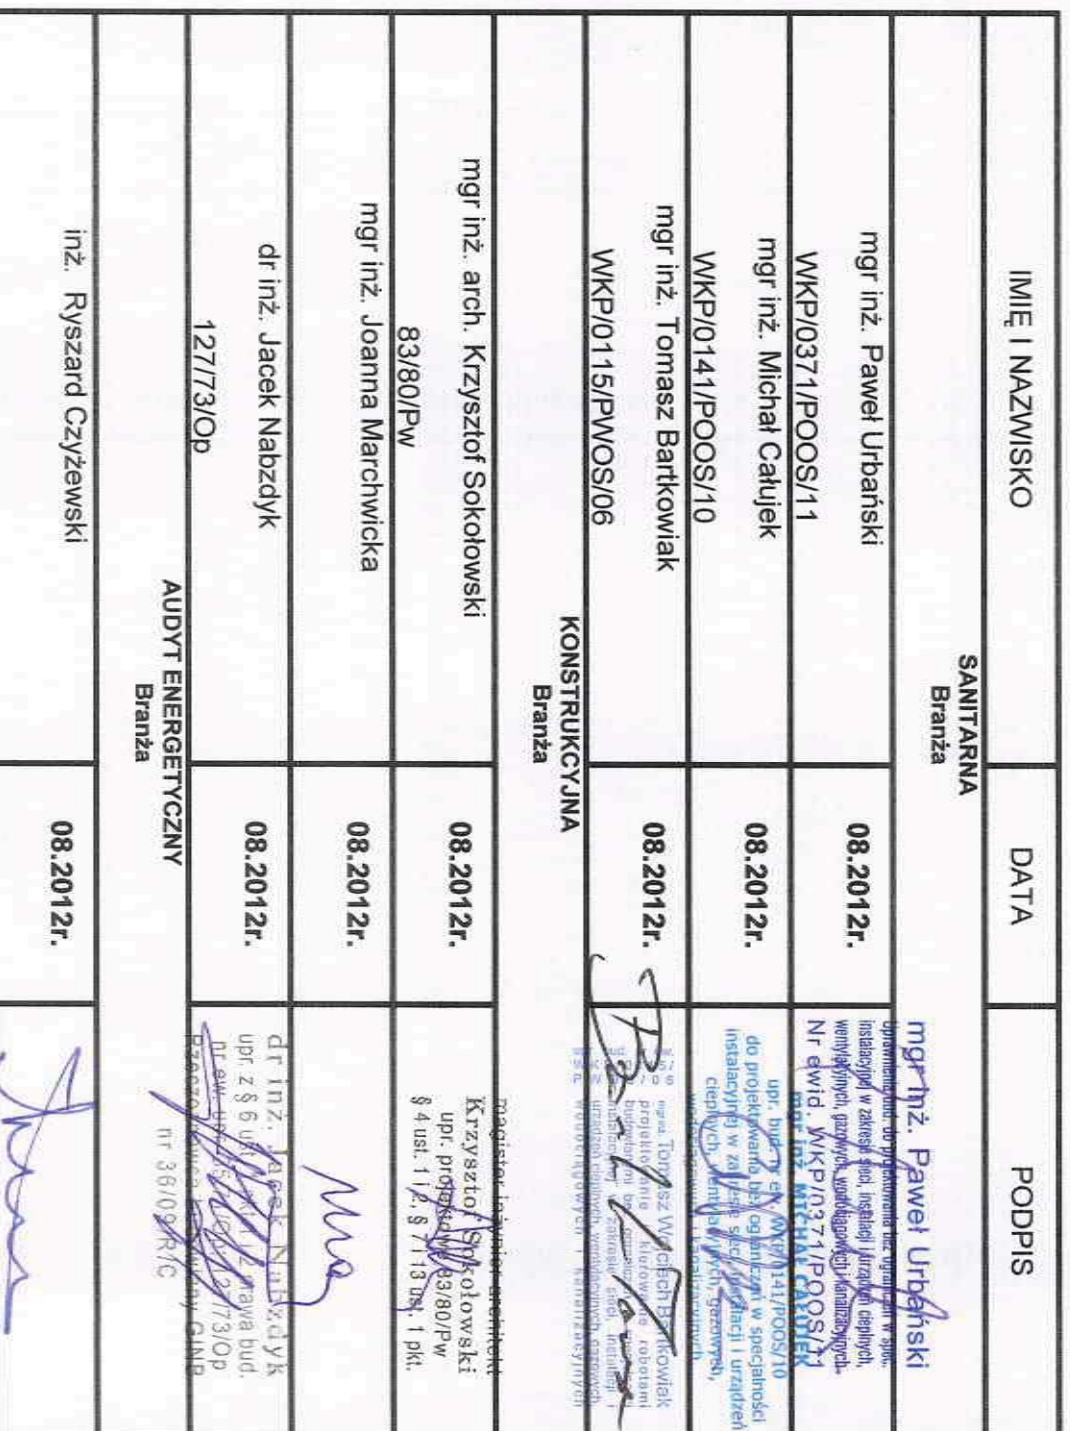 IMIĘ I NAZWISKO
DATA
PODPIS
SANITARNA
Branża
mgr inż. Paweł Urbański
WKP/0371/POOS/11
08.2012r.
mgr inż. Paweł Urbański
instalacyjnej w zakresie sieci, instalacji i urządzeń cieplnych,
wentylacyjnych, gazowych, wodociągowych i kanalizacyjnych
Nr ewid. WKP/0371/POOS/11
mgr inż. Michał Całujek
WKP/0141/POOS/10
08.2012r.
mgr inż. MICHAŁ CAŁUJEK
upr. bud. nr ew. WKP/0141/POOS/10
do projektowania bez ograniczeń w specjalności
instalacyjnej w zakresie sieci, instalacji i urządzeń
cieplnych, wentylacyjnych, gazowych,
wodociągowych i kanalizacyjnych
mgr inż. Tomasz Bartkowiak
WKP/0115/PWOS/06
08.2012r.
mgr inż. Tomasz Wojciech Bartkowiak
projektowanie i kierowanie robotami
urządzeń cieplnych, wentylacyjnych, gazowych,
wodociągowych i kanalizacyjnych
KONSTRUKCYJNA
Branża
mgr inż. arch. Krzysztof Sokołowski
83/80/Pw
08.2012r.
magister inżynier architekt
Krzysztof Sokołowski
upr. projektowe 83/80/Pw
§ 4 ust. 1 i 2, § 7 i 13 ust. 1 pkt.
mgr inż. Joanna Marchwicka
08.2012r.
dr inż. Jacek Nabzdyk
127/73/Op
08.2012r.
dr inż. Jacek Nabzdyk
upr. z § 6 ust. prawa bud.
127/73/Op
nr 36/09/R/C
AUDYT ENERGETYCZNY
Branża
inż. Ryszard Czyżewski
08.2012r.